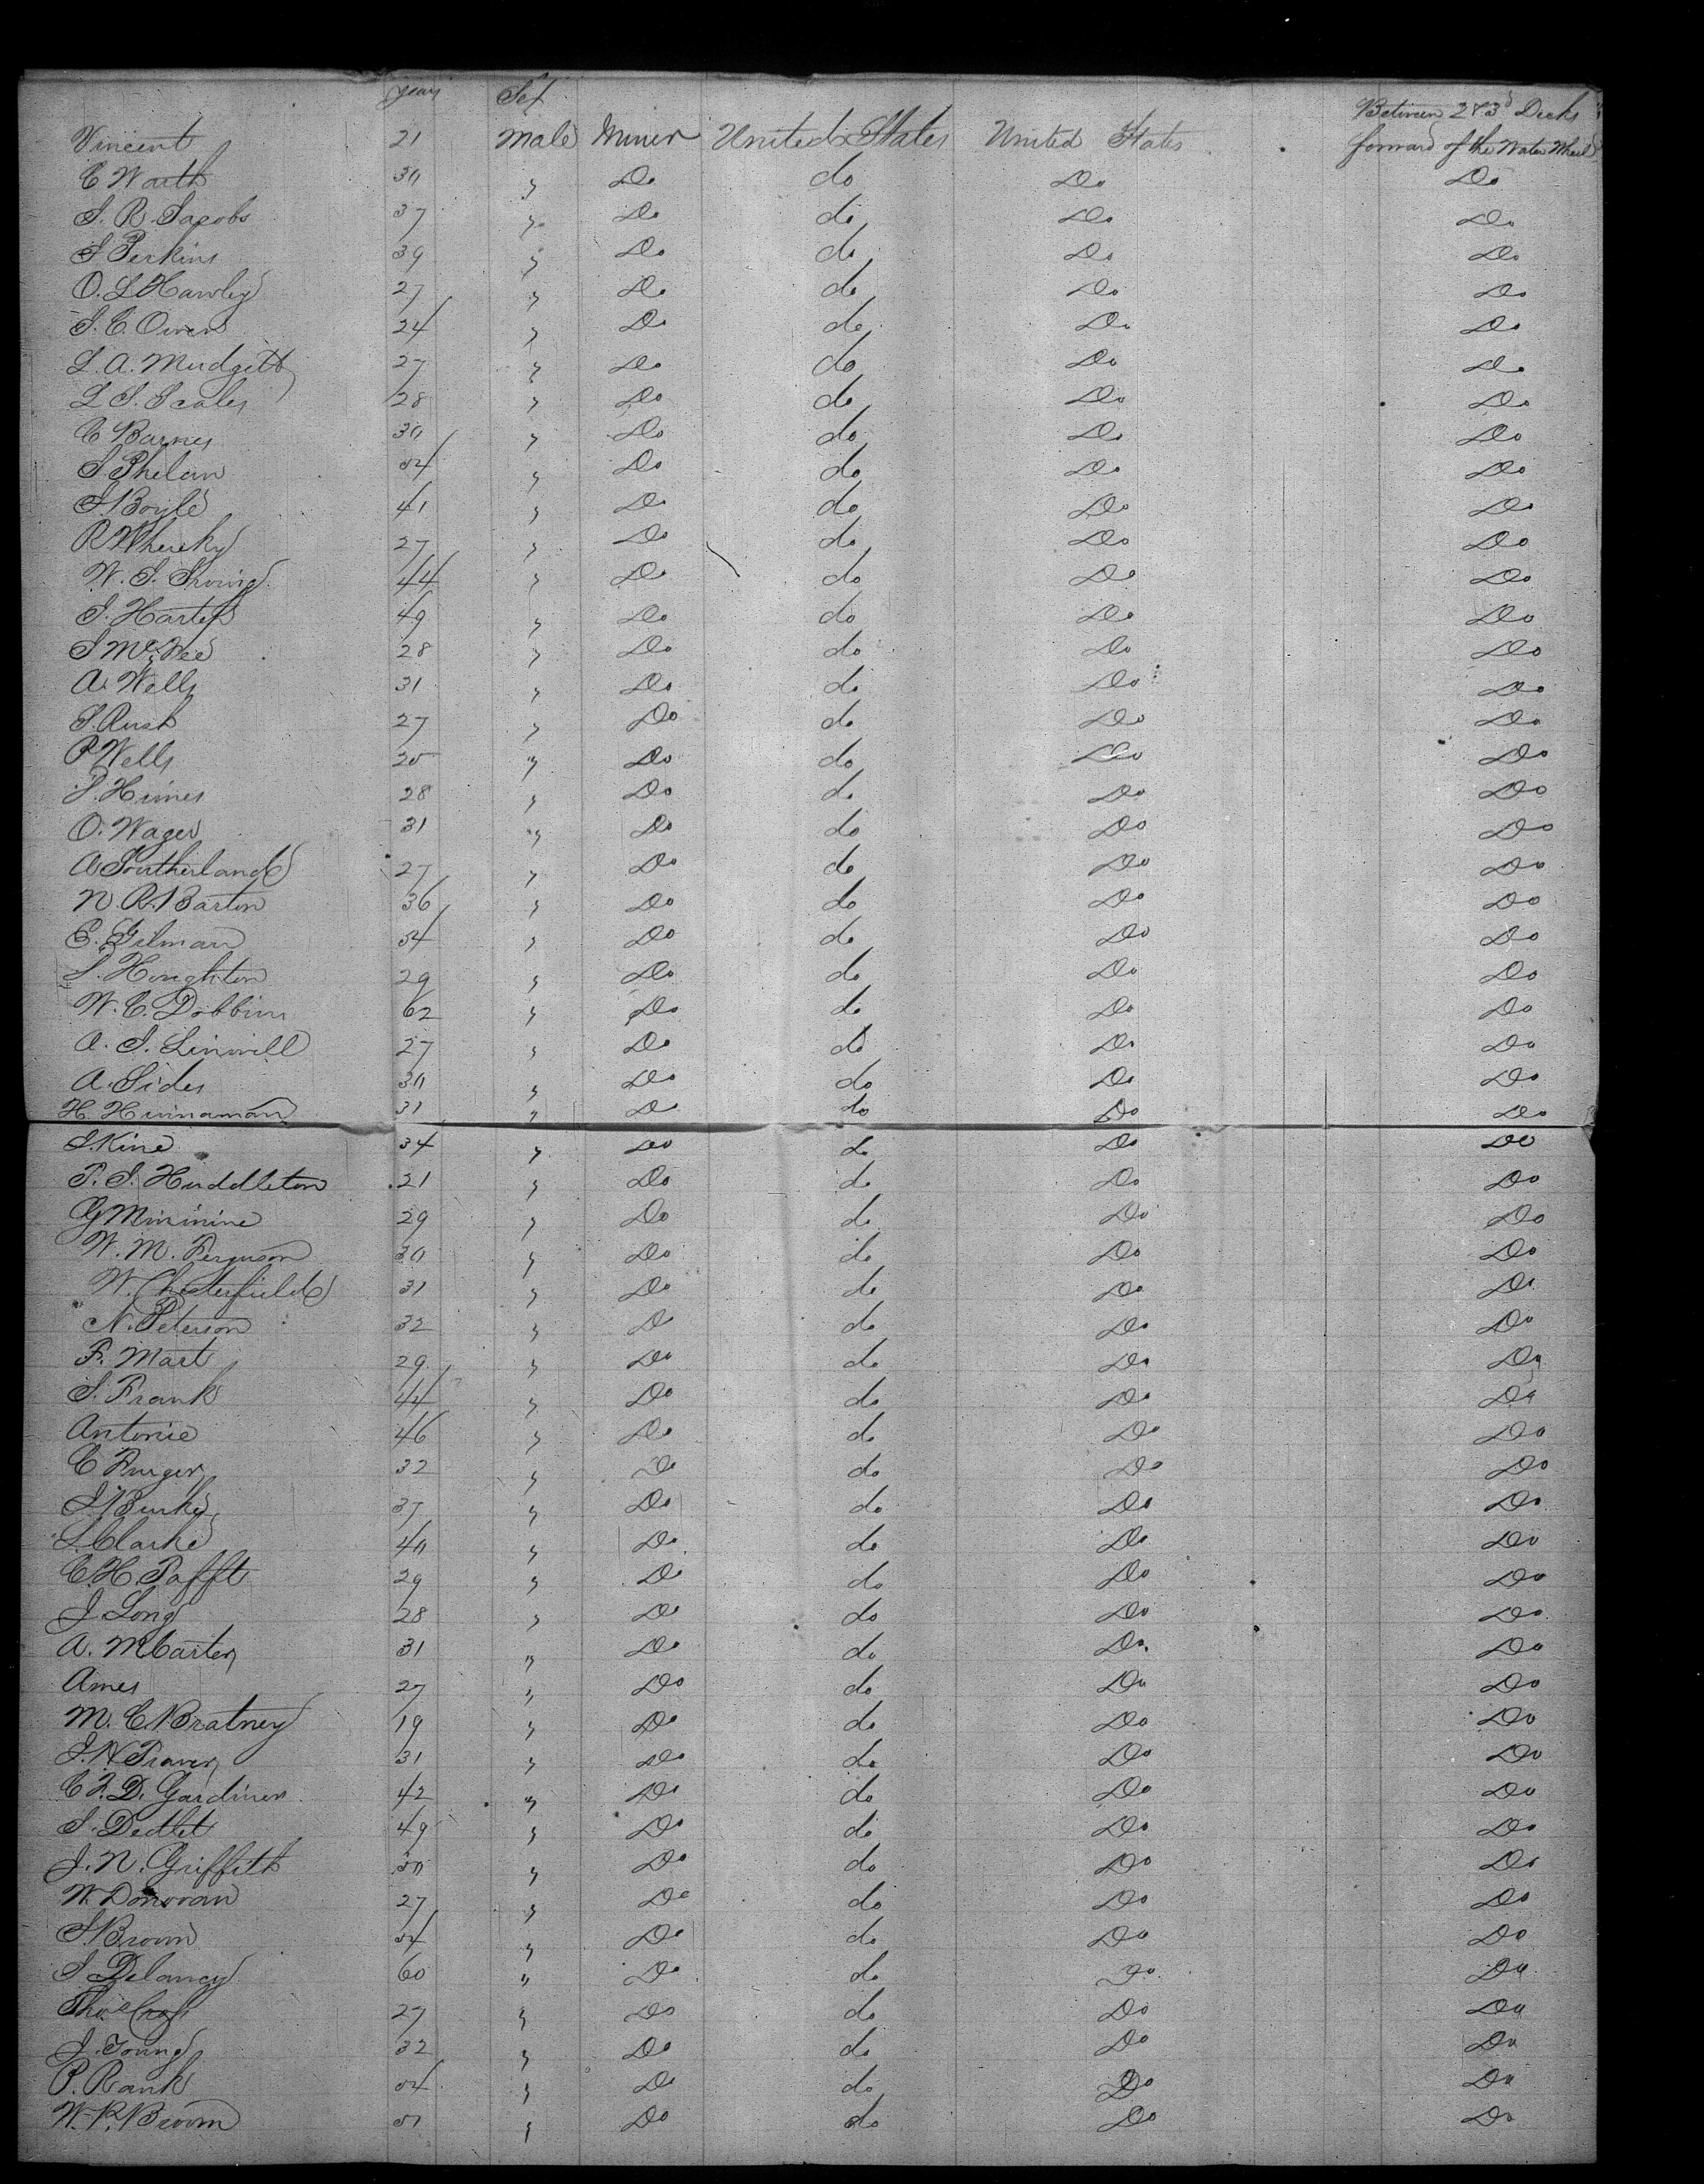 years Sex Between 2 & 3d Decks
Vincent 21 Male Miner United States United States forward of the Water Wheel
C Warth 30 " Do do Do Do
S. R. Jacobs 37 " Do do Do Do
S Perkins 39 " Do do Do Do
O. L Hawley 27 " Do do Do Do
S. C. Owen 24 " Do do Do Do
L. A. Mudgett 27 " Do do Do Do
L S. Scales 28 " Do do Do Do
C Barnes 30 " Do do Do Do
S Phelan 54 " Do do Do Do
J Boyle 41 " Do do Do Do
R Whereky 27 " Do do Do Do
W. S. 44 " Do do Do Do
S. Harter 49 " Do do Do Do
S McNee 28 " Do do Do Do
A. Wells 31 " Do do Do Do
S. Rush 27 " Do do Do Do
P Wells 25 " Do do Do Do
S. Himes 28 " Do do Do Do
O. Wager 31 " Do do Do Do
A Southerland 27 " Do do Do Do
N. R. Barton 36 " Do do Do Do
E. Gilman 54 " Do do Do Do
S. Houghton 29 " Do do Do Do
W. C. Dobbins 62 " Do do Do Do
A. S. Linwill 27 " Do do Do Do
A. Sides 30 " Do do Do Do
H. Hunnaman 31 " Do do Do Do
S. Kine 34 " Do do Do Do
T. S. Huddleton 21 " Do do Do Do
G Mininine 29 " Do do Do Do
W. M. Ferguson 30 " Do do Do Do
W. Chesterfield 31 " Do do Do Do
N. Peterson 32 " Do do Do Do
F. Mart 29 " Do do Do Do
S. Frank 44 " Do do Do Do
Antonie 46 " Do do Do Do
C Furger 32 " Do do Do Do
J Burke 37 " Do do Do Do
S. Clarke 40 " Do do Do Do
C. H. Tafft 29 " Do do Do Do
J. Long 28 " Do do Do Do
A. McCarter 31 " Do do Do Do
Ames 27 " Do do Do Do
M. C. Bratney 19 " Do do Do Do
J. H Traver 31 " Do do Do Do
C. F. D. Gardiner 42 " Do do Do Do
S. Dedlet 49 " Do do Do Do
J. N. Griffith 50 " Do do Do Do
W. Donovan 27 " Do do Do Do
S Brown 54 " Do do Do Do
S Delancy 60 " Do do Do Do
Thos 27 " Do do Do Do
J. Young 32 " Do do Do Do
P. Rank 54 " Do do Do Do
W. P. Broom 51 " Do do Do Do